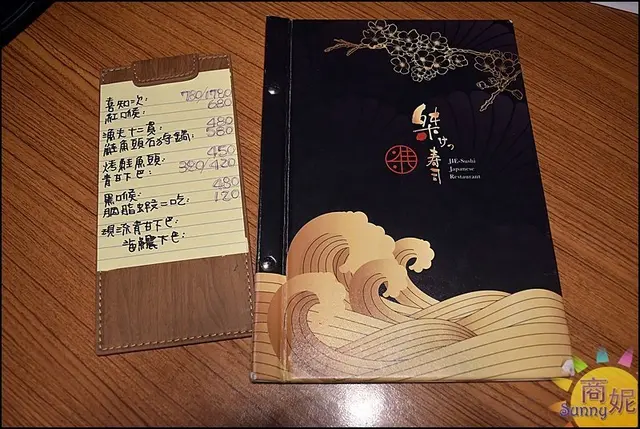 喜知次: 780/1780
紅喉: 680
漁夫十二貫: 480
鮭魚頭石狩鍋: 580
烤鮭魚頭: 450
青甘下巴: 380/420
黑喉: 480
胭脂蝦二吃: 120
現流青甘下巴:
海鱺下巴:
桀 けつ
寿司
JIE-Sushi
Japanese
Restaurant
商妮
Sunny